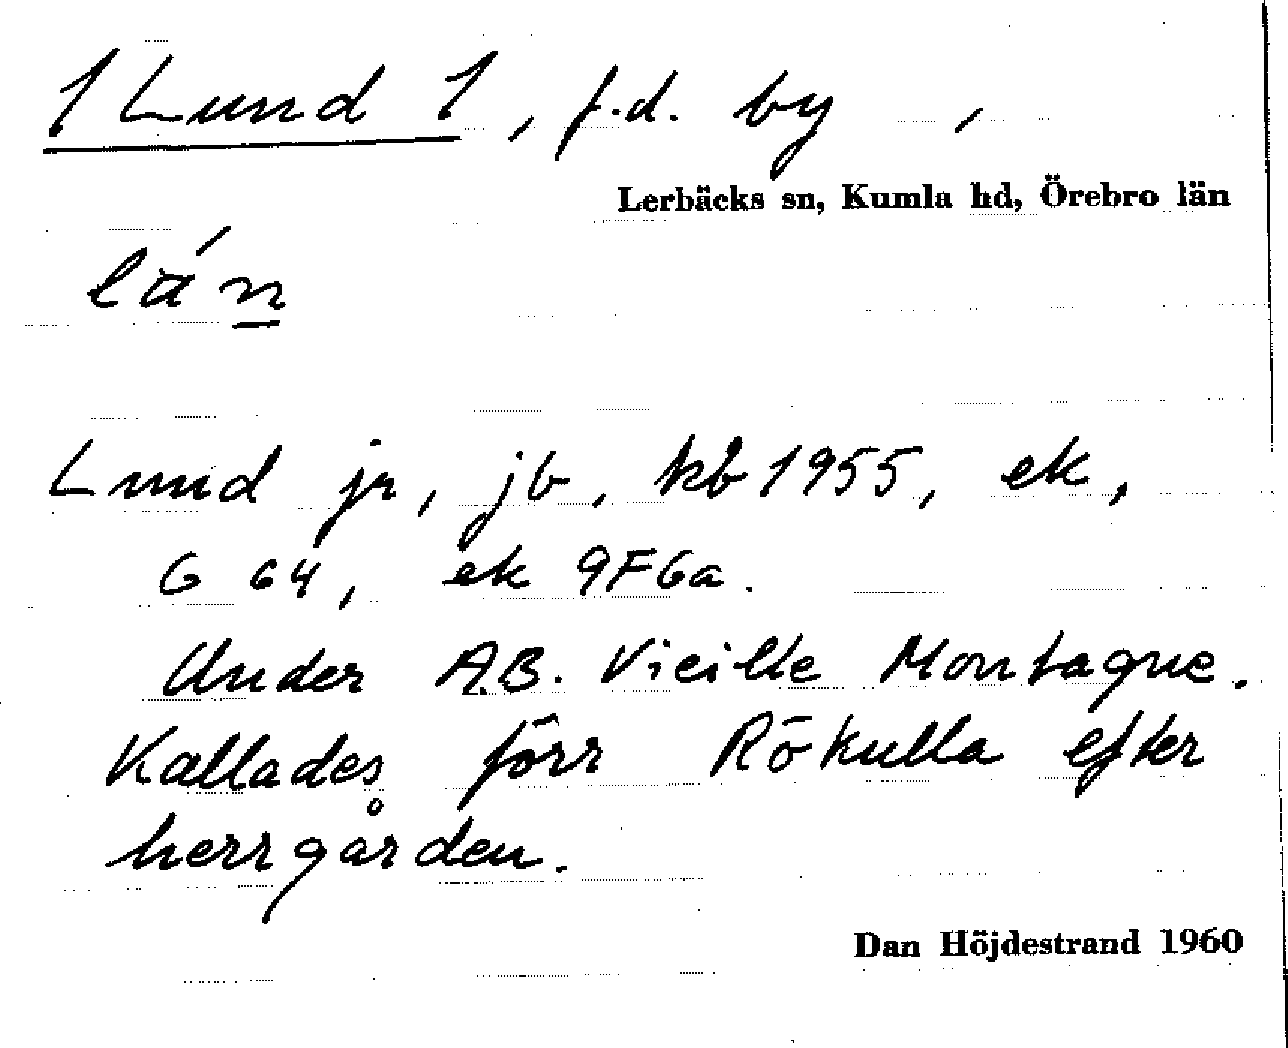 1 Lund 1, f.d. by ,
Lerbäcks sn, Kumla hd, Örebro län
lán
Lund jr, jb, kb 1955, ek,
G 64, ek 9F6a.
Under A.B. Vieille Montagne.
Kallades förr Rökulla efter
herrgården.
Dan Höjdestrand 1960